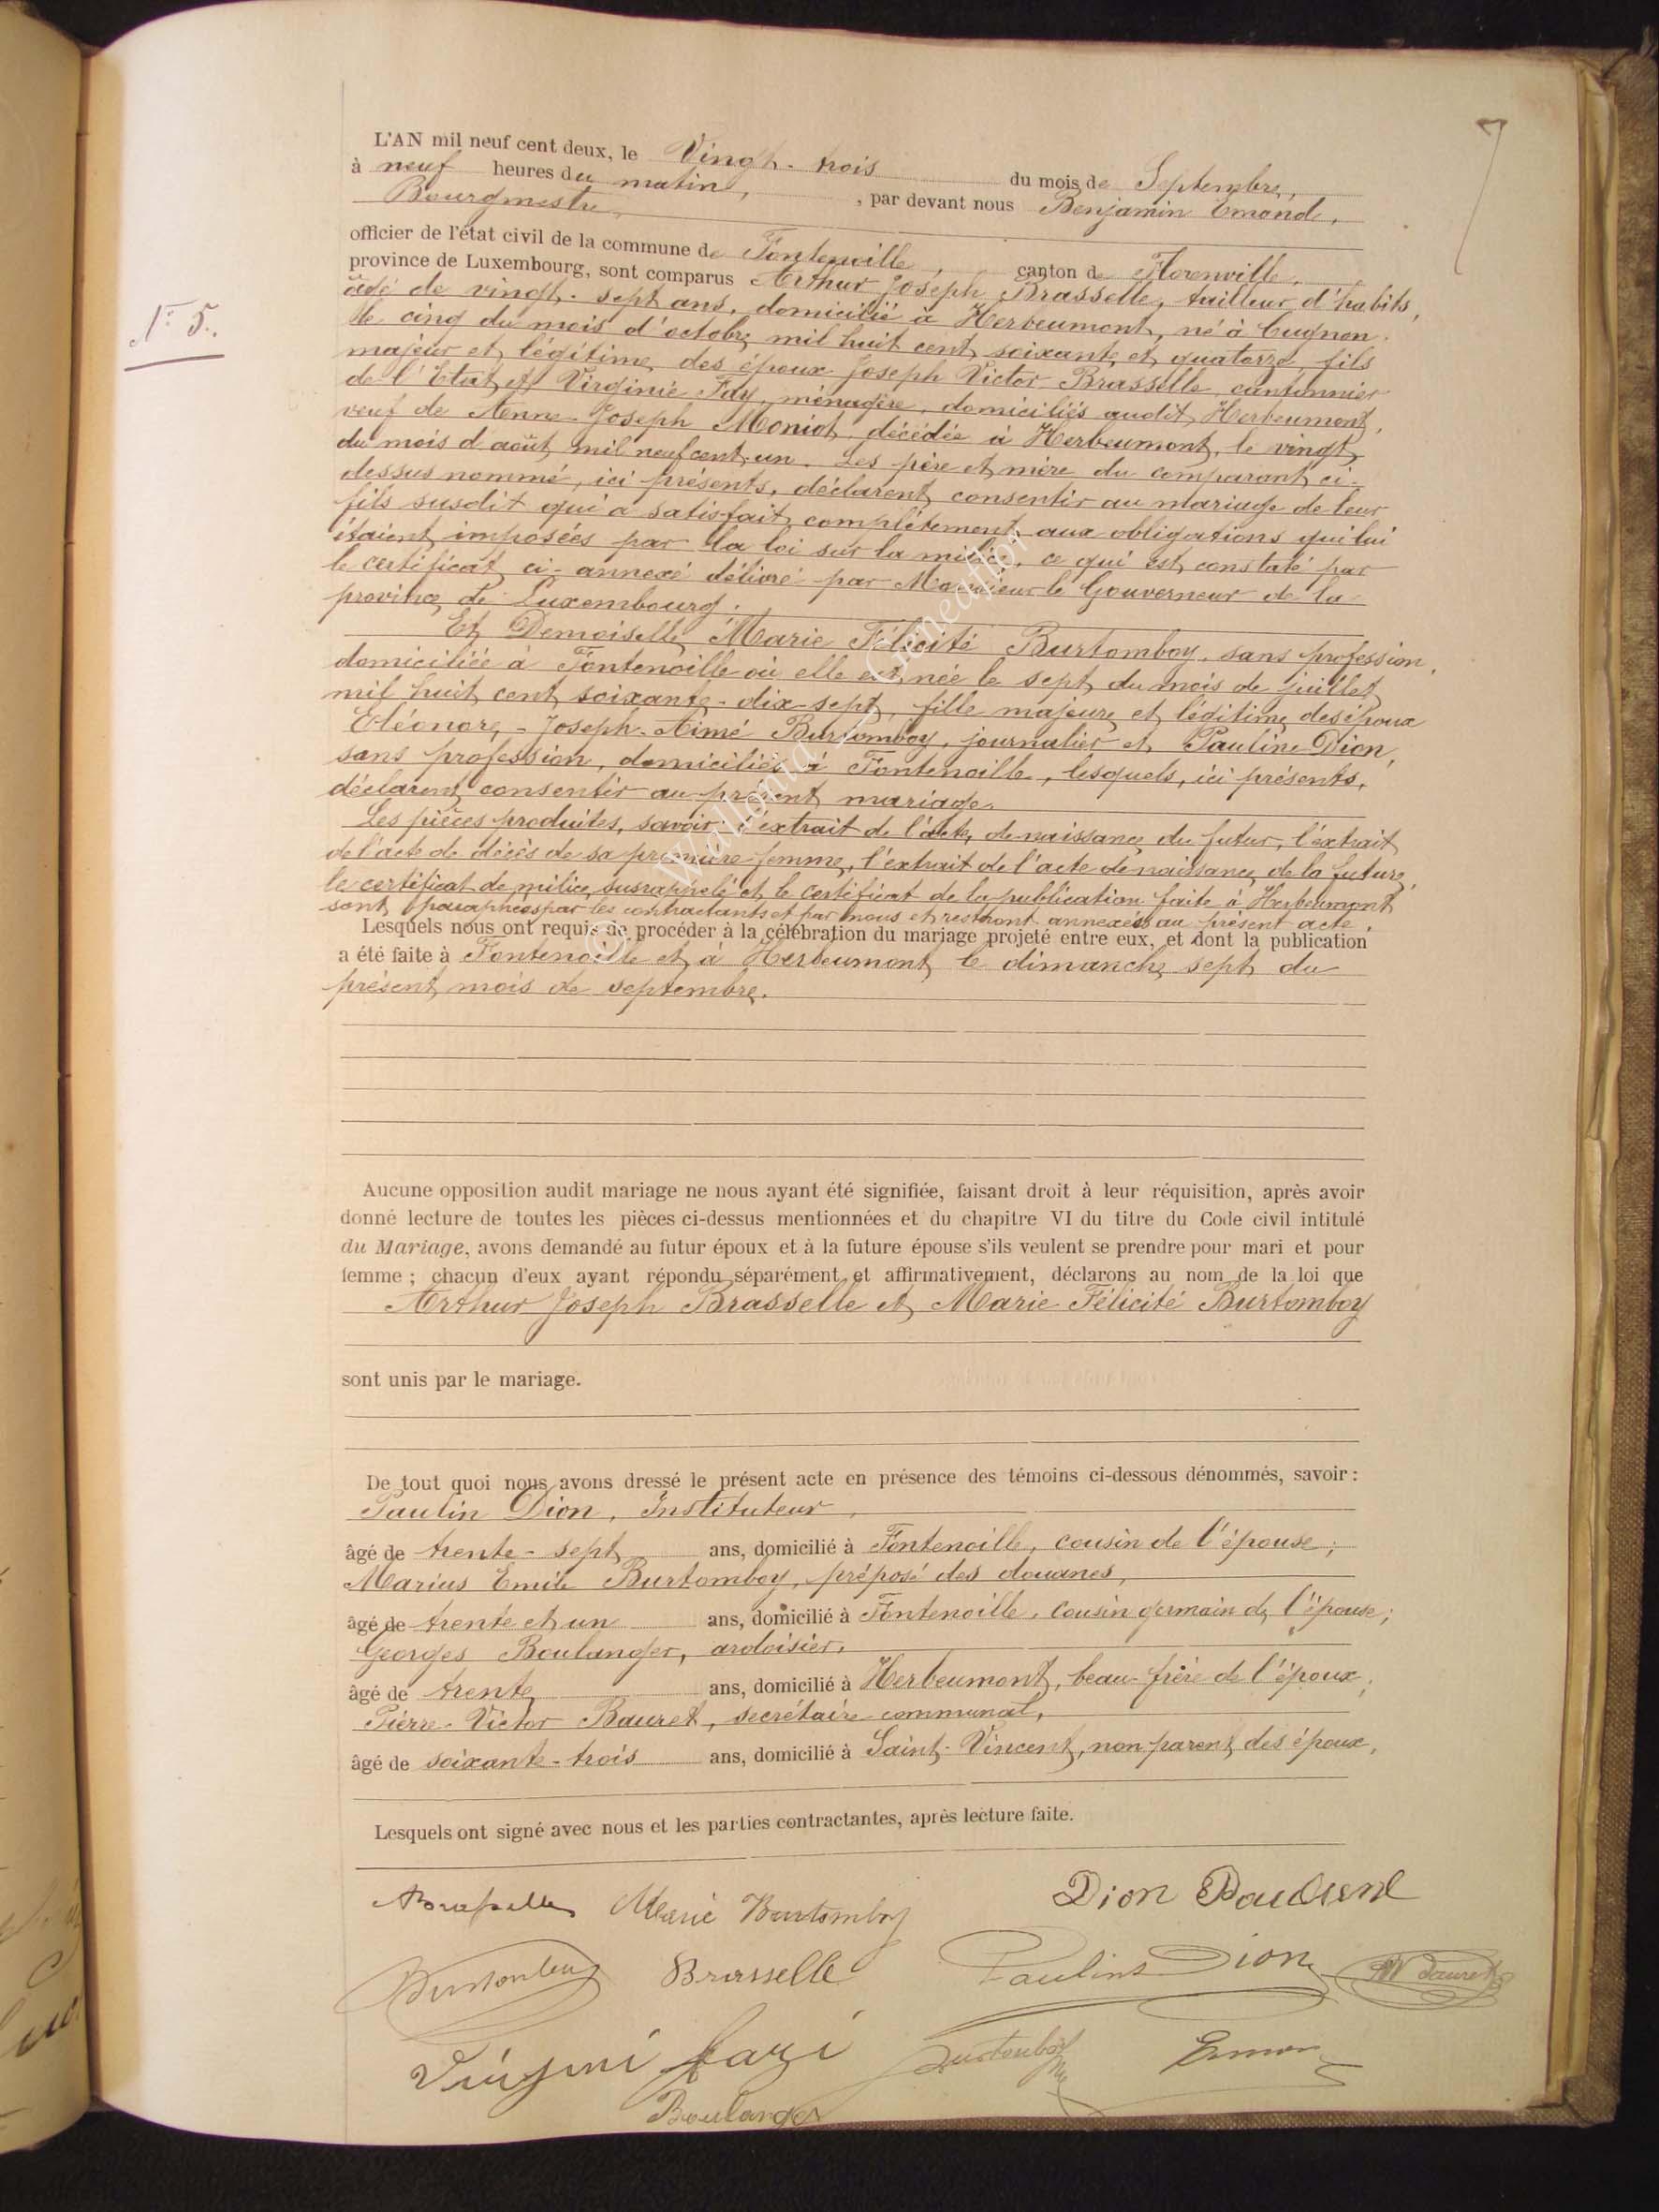 7
N° 5.
L'AN mil neuf cent deux, le Vingt-trois du mois de Septembre,
à neuf heures du matin, , par devant nous Benjamin Emond,
Bourgmestre,
officier de l'état civil de la commune de Fontenoille, canton de Florenville,
province de Luxembourg, sont comparus Arthur Joseph Brasselle, tailleur d'habits,
âgé de vingt-sept ans, domicilié à Herbeumont, né à Cugnon
le cinq du mois d'octobre mil huit cent soixante et quatorze, fils
majeur et légitime des époux Joseph Victor Brasselle, cantonnier
de l'Etat et Virginie Fay, ménagère, domiciliés audit Herbeumont,
veuf de Anne-Joseph Moniot, décédée à Herbeumont, le vingt
du mois d'août mil neuf cent un. Les père et mère du comparant ci-
dessus nommé, ici présents, déclarent consentir au mariage de leur
fils susdit qui a satisfait complètement aux obligations qui lui
étaient imposées par la loi sur la milice, ce qui est constaté par
le certificat ci-annexé délivré par Monsieur le Gouverneur de la
province de Luxembourg.
Et Demoiselle Marie Félicité Burtomboy, sans profession,
domiciliée à Fontenoille où elle est née le sept du mois de juillet
mil huit cent soixante-dix-sept, fille majeure et légitime des époux
Eléonore-Joseph-Aimé Burtomboy, journalier et Pauline Dion,
sans profession, domiciliés à Fontenoille, lesquels, ici présents,
déclarent consentir au présent mariage.
Les pièces produites, savoir: l'extrait de l'acte de naissance du futur, l'extrait
de l'acte de décès de sa première femme, l'extrait de l'acte de naissance de la future,
le certificat de milice susrappelé et le certificat de la publication faite à Herbeumont
sont paraphées par les contractants et par nous et resteront annexées au présent acte.
Lesquels nous ont requis de procéder à la célébration du mariage projeté entre eux, et dont la publication
a été faite à Fontenoille et à Herbeumont le dimanche sept du
présent mois de septembre.
Aucune opposition audit mariage ne nous ayant été signifiée, faisant droit à leur réquisition, après avoir
donné lecture de toutes les pièces ci-dessus mentionnées et du chapitre VI du titre du Code civil intitulé
du Mariage, avons demandé au futur époux et à la future épouse s'ils veulent se prendre pour mari et pour
femme ; chacun d'eux ayant répondu séparément et affirmativement, déclarons au nom de la loi que
Arthur Joseph Brasselle et Marie Félicité Burtomboy
sont unis par le mariage.
De tout quoi nous avons dressé le présent acte en présence des témoins ci-dessous dénommés, savoir :
Paulin Dion, Instituteur,
âgé de trente-sept ans, domicilié à Fontenoille, cousin de l'épouse;
Marius Emile Burtomboy, préposé des douanes,
âgé de trente et un ans, domicilié à Fontenoille, cousin germain de l'épouse;
Georges Boulanger, ardoisier,
âgé de trente ans, domicilié à Herbeumont, beau-frère de l'époux;
Pierre-Victor Bauret, secrétaire communal,
âgé de soixante-trois ans, domicilié à Saint-Vincent, non parent des époux,
Lesquels ont signé avec nous et les parties contractantes, après lecture faite.
ABrasselle Marie Burtomboy Dion
Burtomboy Brasselle Paulin Dion Bauret
Burtomboy Emond
Boulanger
© Wallonia - Généaflor